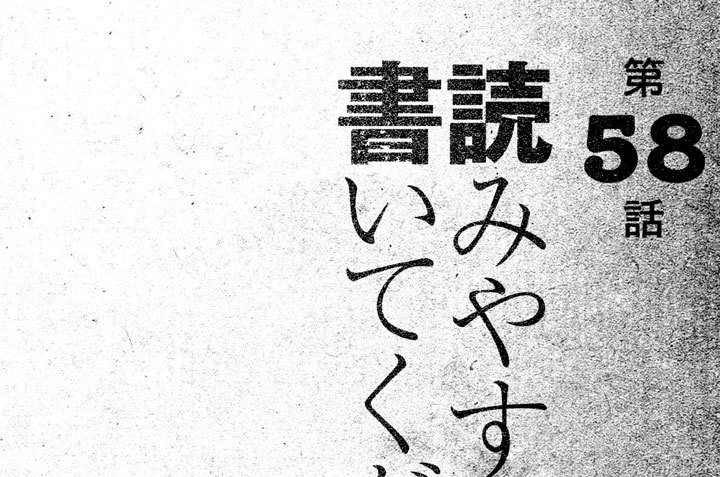 第58話
読みやす
書いてくだ